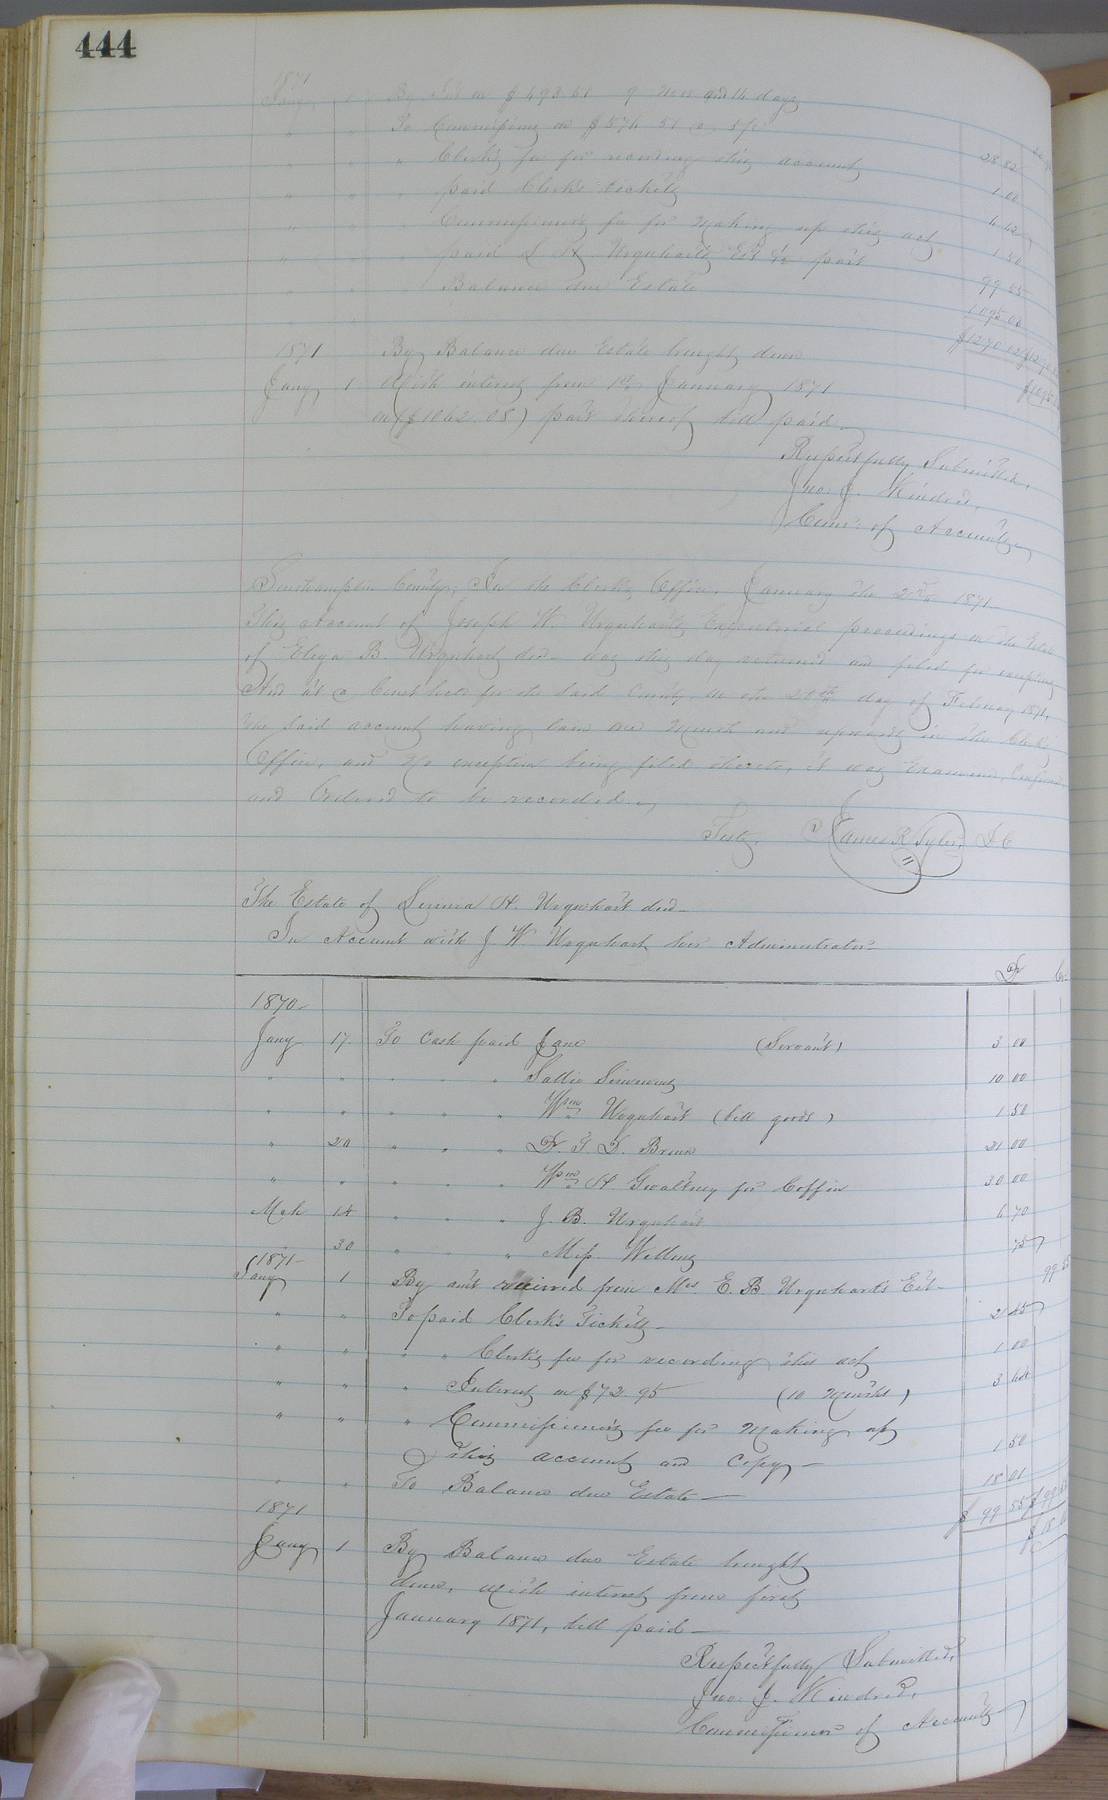 444
1871
Jany 1 By Int on $493.61 9 mos and 14 days
" " To Commissions on $576 51 @ 5 pc 28 82
" " " Clerk's fee for recording this account 1 00
" " " paid Clerk's tickets
" " " Commissioners fee for making up this act 1 50
" " " paid S H Urquhart's Est in part 99 55
" " " Balance due Estate 1095 03
$1270 32
1871 By Balance due Estate brought down
Jany 1 With interest from 1st January 1871
on ($1062.08) part thereof till paid
Respectfully Submitted,
Jno. J. Kindred,
Comr. of Accounts
Southampton County, In the Clerk's Office, January the 2nd 1871
This Account of Joseph W. Urquhart's Executorial proceedings on the Estate
of Eliza B. Urquhart decd was this day returned and filed for exceptions
And at a Court held for the said County on the 20th day of February 1871,
the said account having lain one month and upwards in the Clerk's
Office, and no exception being filed thereto, it was examined, Confirmed
and Ordered to be recorded
Teste, James R Tyler, D C
The Estate of Senora H. Urquhart decd
In Account with J W Urquhart her Administrator
Dr Cr
1870
Jany 17 To Cash paid Jane (Servant) 3 00
" " " " " Sallie Simmons 10 00
" " " " " Wm Urquhart (bill goods) 1 50
" 20 " " " Dr. T D. 21 00
" " " " " Wm H Gwaltney for Coffin 30 00
Mch 14 " " " J. B. Urquhart 6 70
30 " " " Miss 75
1871
Jany 1 By amt received from Mrs E. B Urquhart's Est 99 55
" " To paid Clerk's Tickets 2 45
" " " " Clerk's fee for recording this act 1 00
" " " Interest on $72.95 (10 months) 3 64
" " " Commissioner's fee for making up
this account and Copy 1 50
" " To Balance due Estate 18 01
$ 99 55 $ 99 55
1871 $ 18 01
Jany 1 By Balance due Estate brought
down, with interest from first
January 1871, till paid
Respectfully Submitted,
Jno. J. Kindred,
Commissioner of Accounts